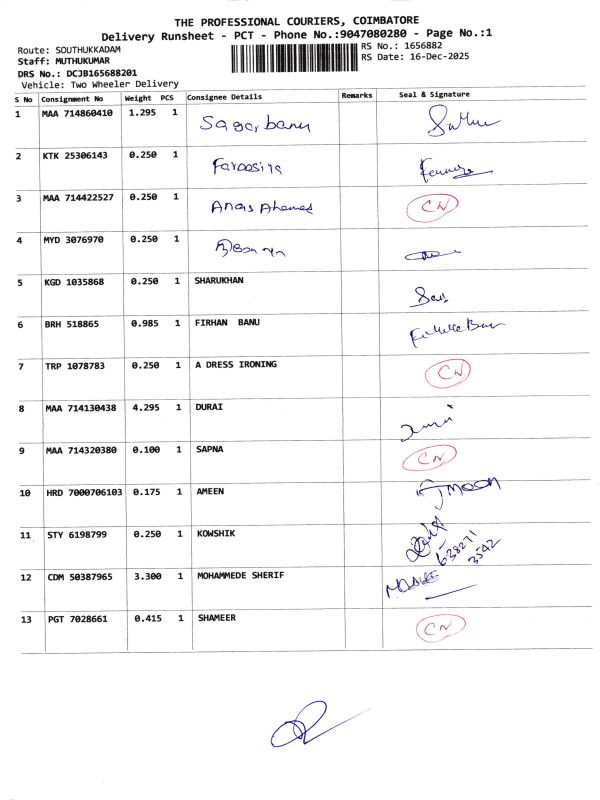 THE PROFESSIONAL COURIERS, COIMBATORE
Delivery Runsheet - PCT - Phone No.:9047080280 - Page No.:1
Route: SOUTHUKKADAM RS No.: 1656882
Staff: MUTHUKUMAR RS Date: 16-Dec-2025
DRS No.: DCJB165688201
Vehicle: Two Wheeler Delivery
S No Consignment No Weight PCS Consignee Details Remarks Seal & Signature
1 MAA 714860410 1.295 1 Sagarbanu
2 KTK 25306143 0.250 1 Faroosiya
3 MAA 714422527 0.250 1 Anais Ahamed CN
4 MYD 3076970 0.250 1
5 KGD 1035868 0.250 1 SHARUKHAN
6 BRH 518865 0.985 1 FIRHAN BANU
7 TRP 1078783 0.250 1 A DRESS IRONING CN
8 MAA 714130438 4.295 1 DURAI
9 MAA 714320380 0.100 1 SAPNA CN
10 HRD 7000706103 0.175 1 AMEEN
11 STY 6198799 0.250 1 KOWSHIK 638271
3542
12 CDM 50387965 3.300 1 MOHAMMEDE SHERIF
13 PGT 7028661 0.415 1 SHAMEER CN